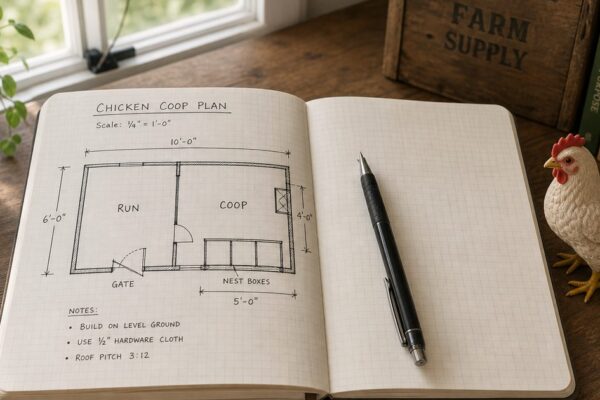 FARM
SUPPLY
CHICKEN COOP PLAN
Scale: ¼" = 1'-0"
10'-0"
6'-0"
RUN
COOP
4'-0"
GATE
NEST BOXES
5'-0"
NOTES:
• BUILD ON LEVEL GROUND
• USE ½" HARDWARE CLOTH
• ROOF PITCH 3:12